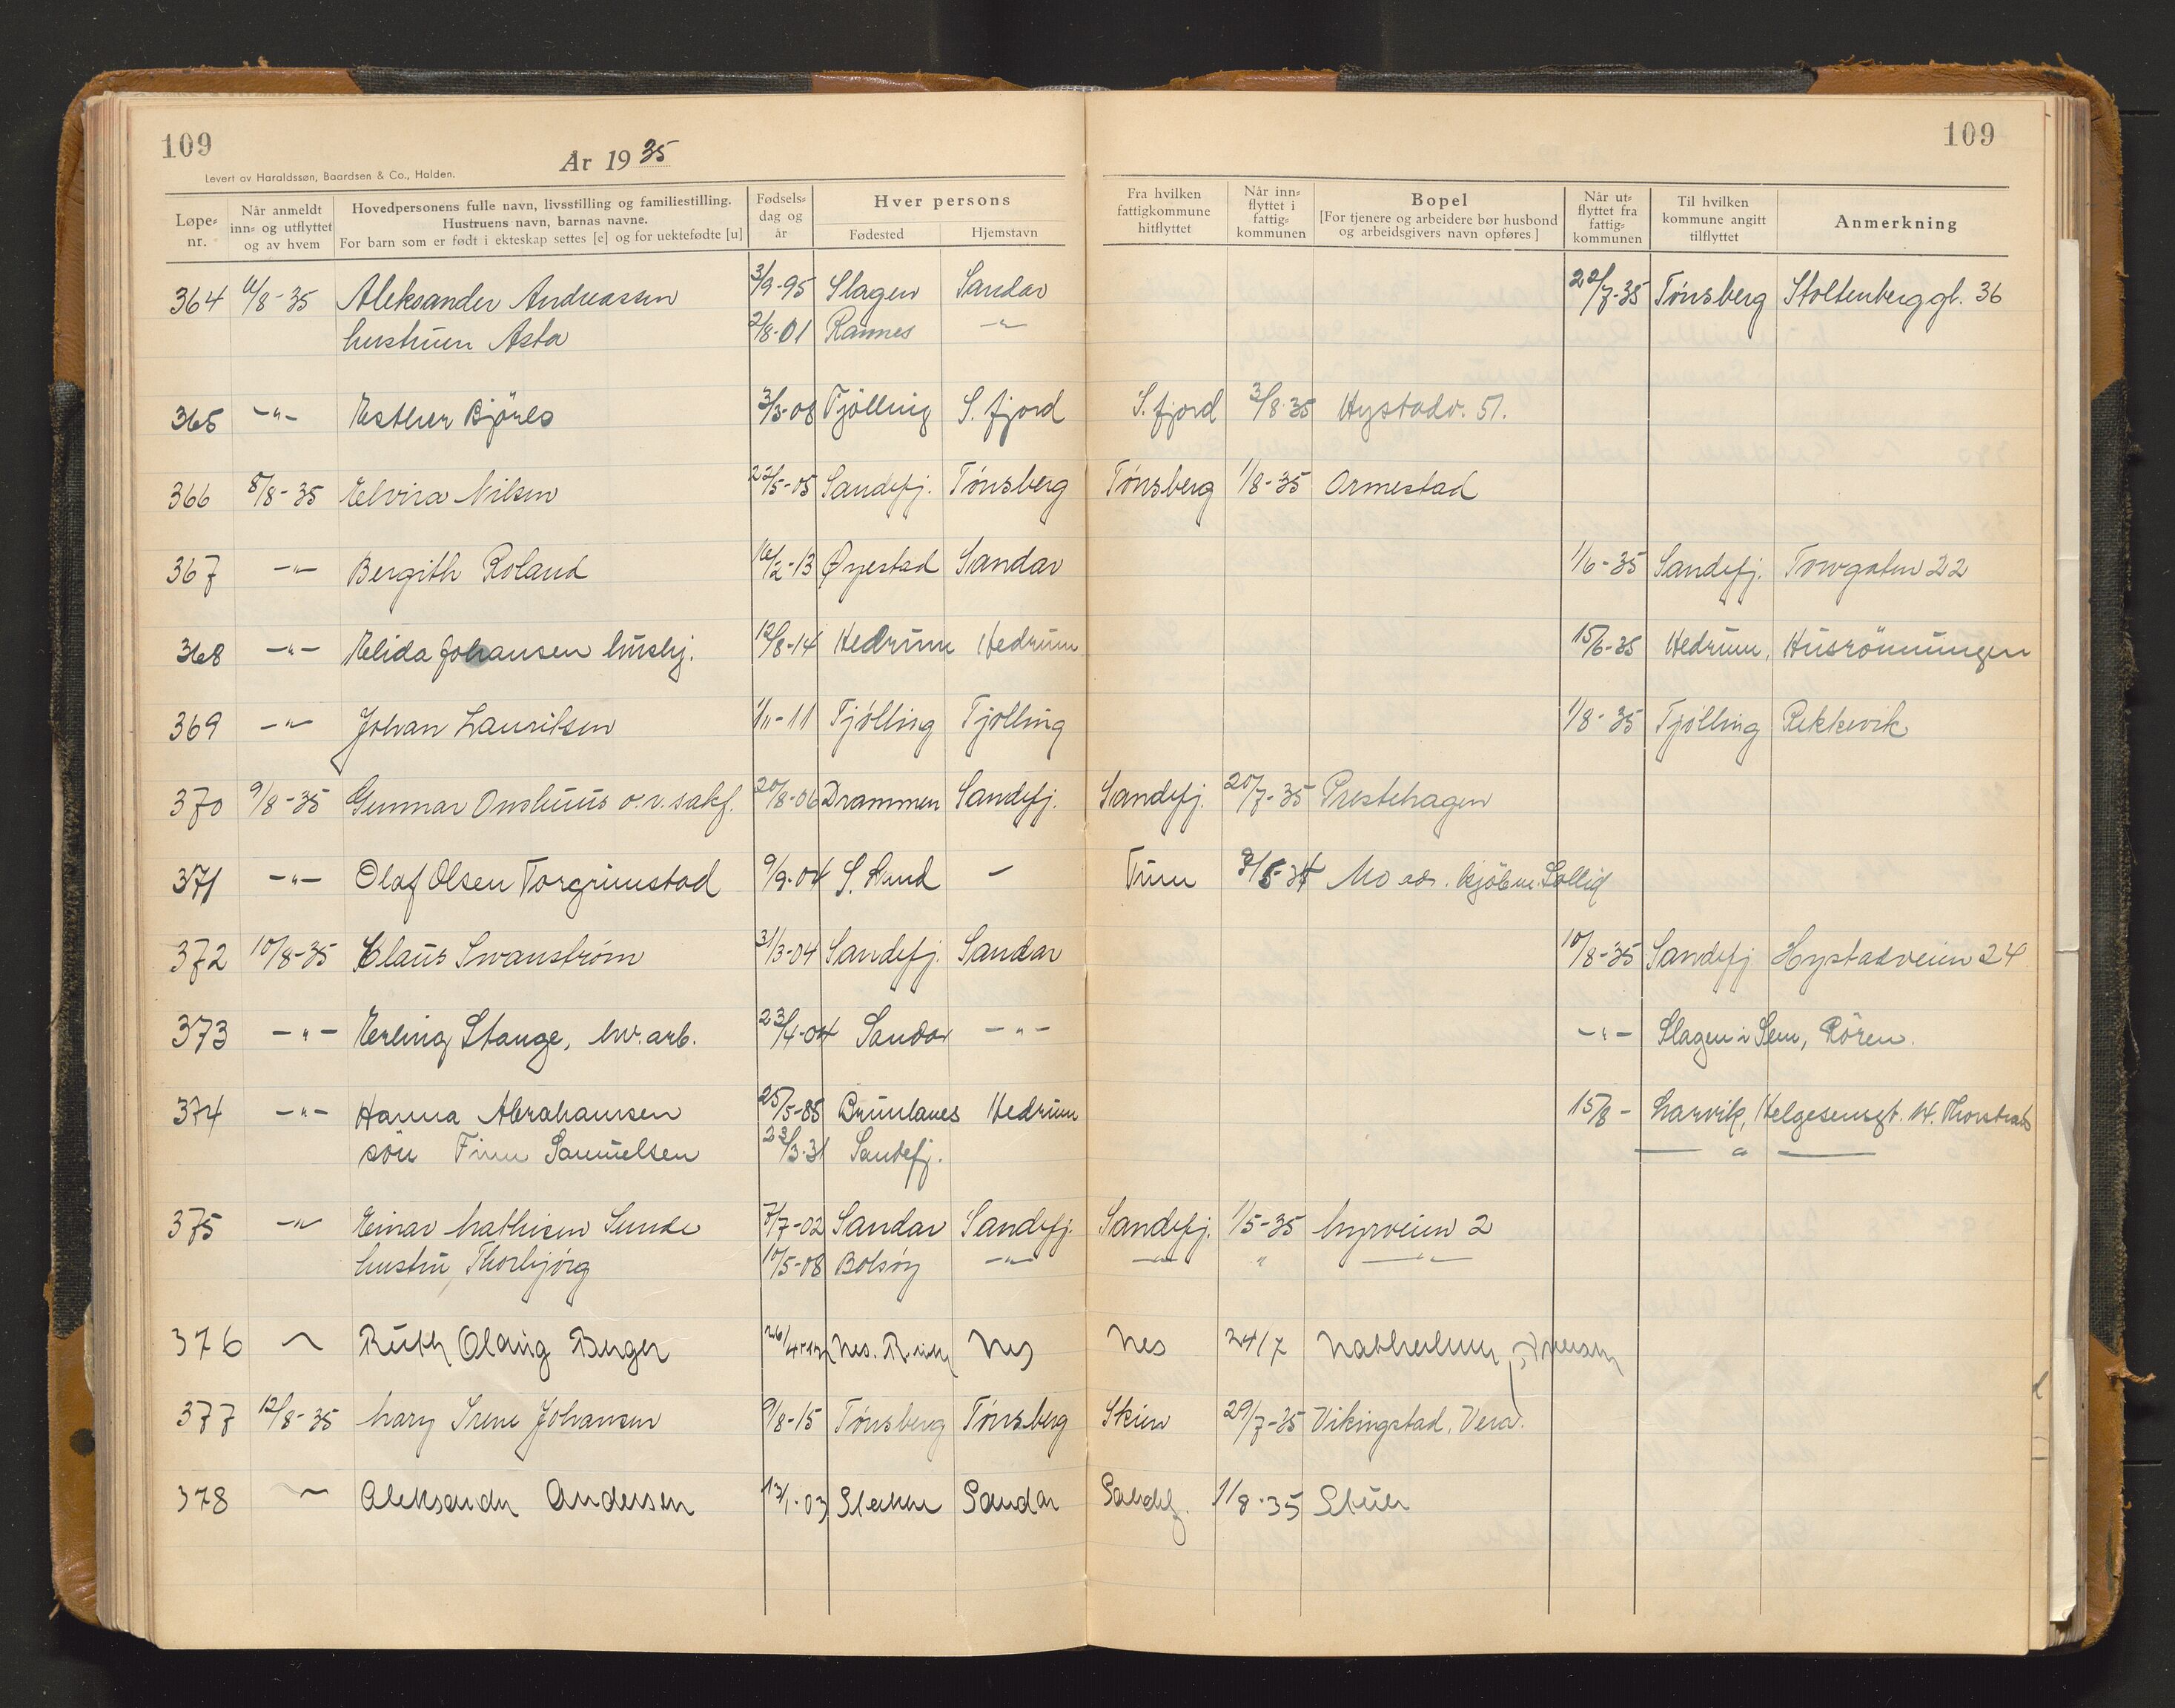 109
109
År 1935
Levert av Haraldssøn, Baardsen & Co., Halden.
Løpe-nr. Når anmeldt inn- og utflyttet og av hvem Hovedpersonens fulle navn, livsstilling og familiestilling. Hustruens navn, barnas navne. For barn som er født i ekteskap settes [e] og for uektefødte [u] Fødsels-dag og år Hver persons Fødested Hjemstavn Fra hvilken fattigkommune hitflyttet Når inn-flyttet i fattig-kommunen Bopel [For tjenere og arbeidere bør husbond og arbeidsgivers navn opføres] Når ut-flyttet fra fattig-kommunen Til hvilken kommune angitt tilflyttet Anmerkning
364 /8-35 Aleksander Andreassen 3/9-95 Slagen Sandar 22/7-35 Tønsberg Stoltenberggt. 36
hustruen Asta 2/8-01 Ramnes -"-
365 -"- Esther Bjönes 3/3-08 Tjölling S.fjord S.fjord 3/8-35 Hystadv. 51.
366 8/8-35 Elvira Nilsen 22/5-05 Sandefj. Tønsberg Tønsberg 1/8-35 Ormestad
367 -"- Bergith Roland 16/2-13 Øyestad Sandar 1/6-35 Sandefj. Torvgaten 22
368 -"- Elida Johansen hushj. 12/8-14 Hedrum Hedrum 15/6-35 Hedrum, Husrönningen
369 -"- Johan Lauritsen 1/11-11 Tjølling Tjølling 1/8-35 Tjølling Rekkevik
370 9/8-35 Gunnar Onshuus o.r.sakf. 20/8-06 Drammen Sandefj. Sandefj. 20/7-35 Prestehagen
371 -"- Olaf Olsen Torgrimstad 9/9-04 S. Land - Tinn /5-34 Mo adr. kjöbm. Sollid
372 10/8-35 Klaus Swanstrøm 31/3-04 Sandefj. Sandar 10/8-35 Sandefj Hystadveien 24
373 -"- Erling Stange, hv.arb. 23/4-04 Sandar -"- -"- Slagen i Sem, Rören.
374 -"- Hanna Abrahamsen 25/5-85 Brunlanes Hedrum 15/8- Larvik, Helgesensgt. 14. Thorstrand
sön Finn Samuelsen 23/3-31 Sandefj. -"-
375 -"- Einar Mathisen Sunde 7/7-02 Sandar Sandefj. Sandefj. 1/5-35 Myrveien 2
hustru Thorbjørg 10/5-08 Bolsøy -"- -"- " -"-
376 - Ruth Olaug Berger 26/4- Nes. Nes Nes 24/7
377 12/8-35 Mary Irene Johansen 9/8-15 Tønsberg Tønsberg Skien 29/7-35 Vikingstad, Vera.
378 - Aleksander Andersen 13/1-03 Stokke Sandar Sandefj. 1/8-35